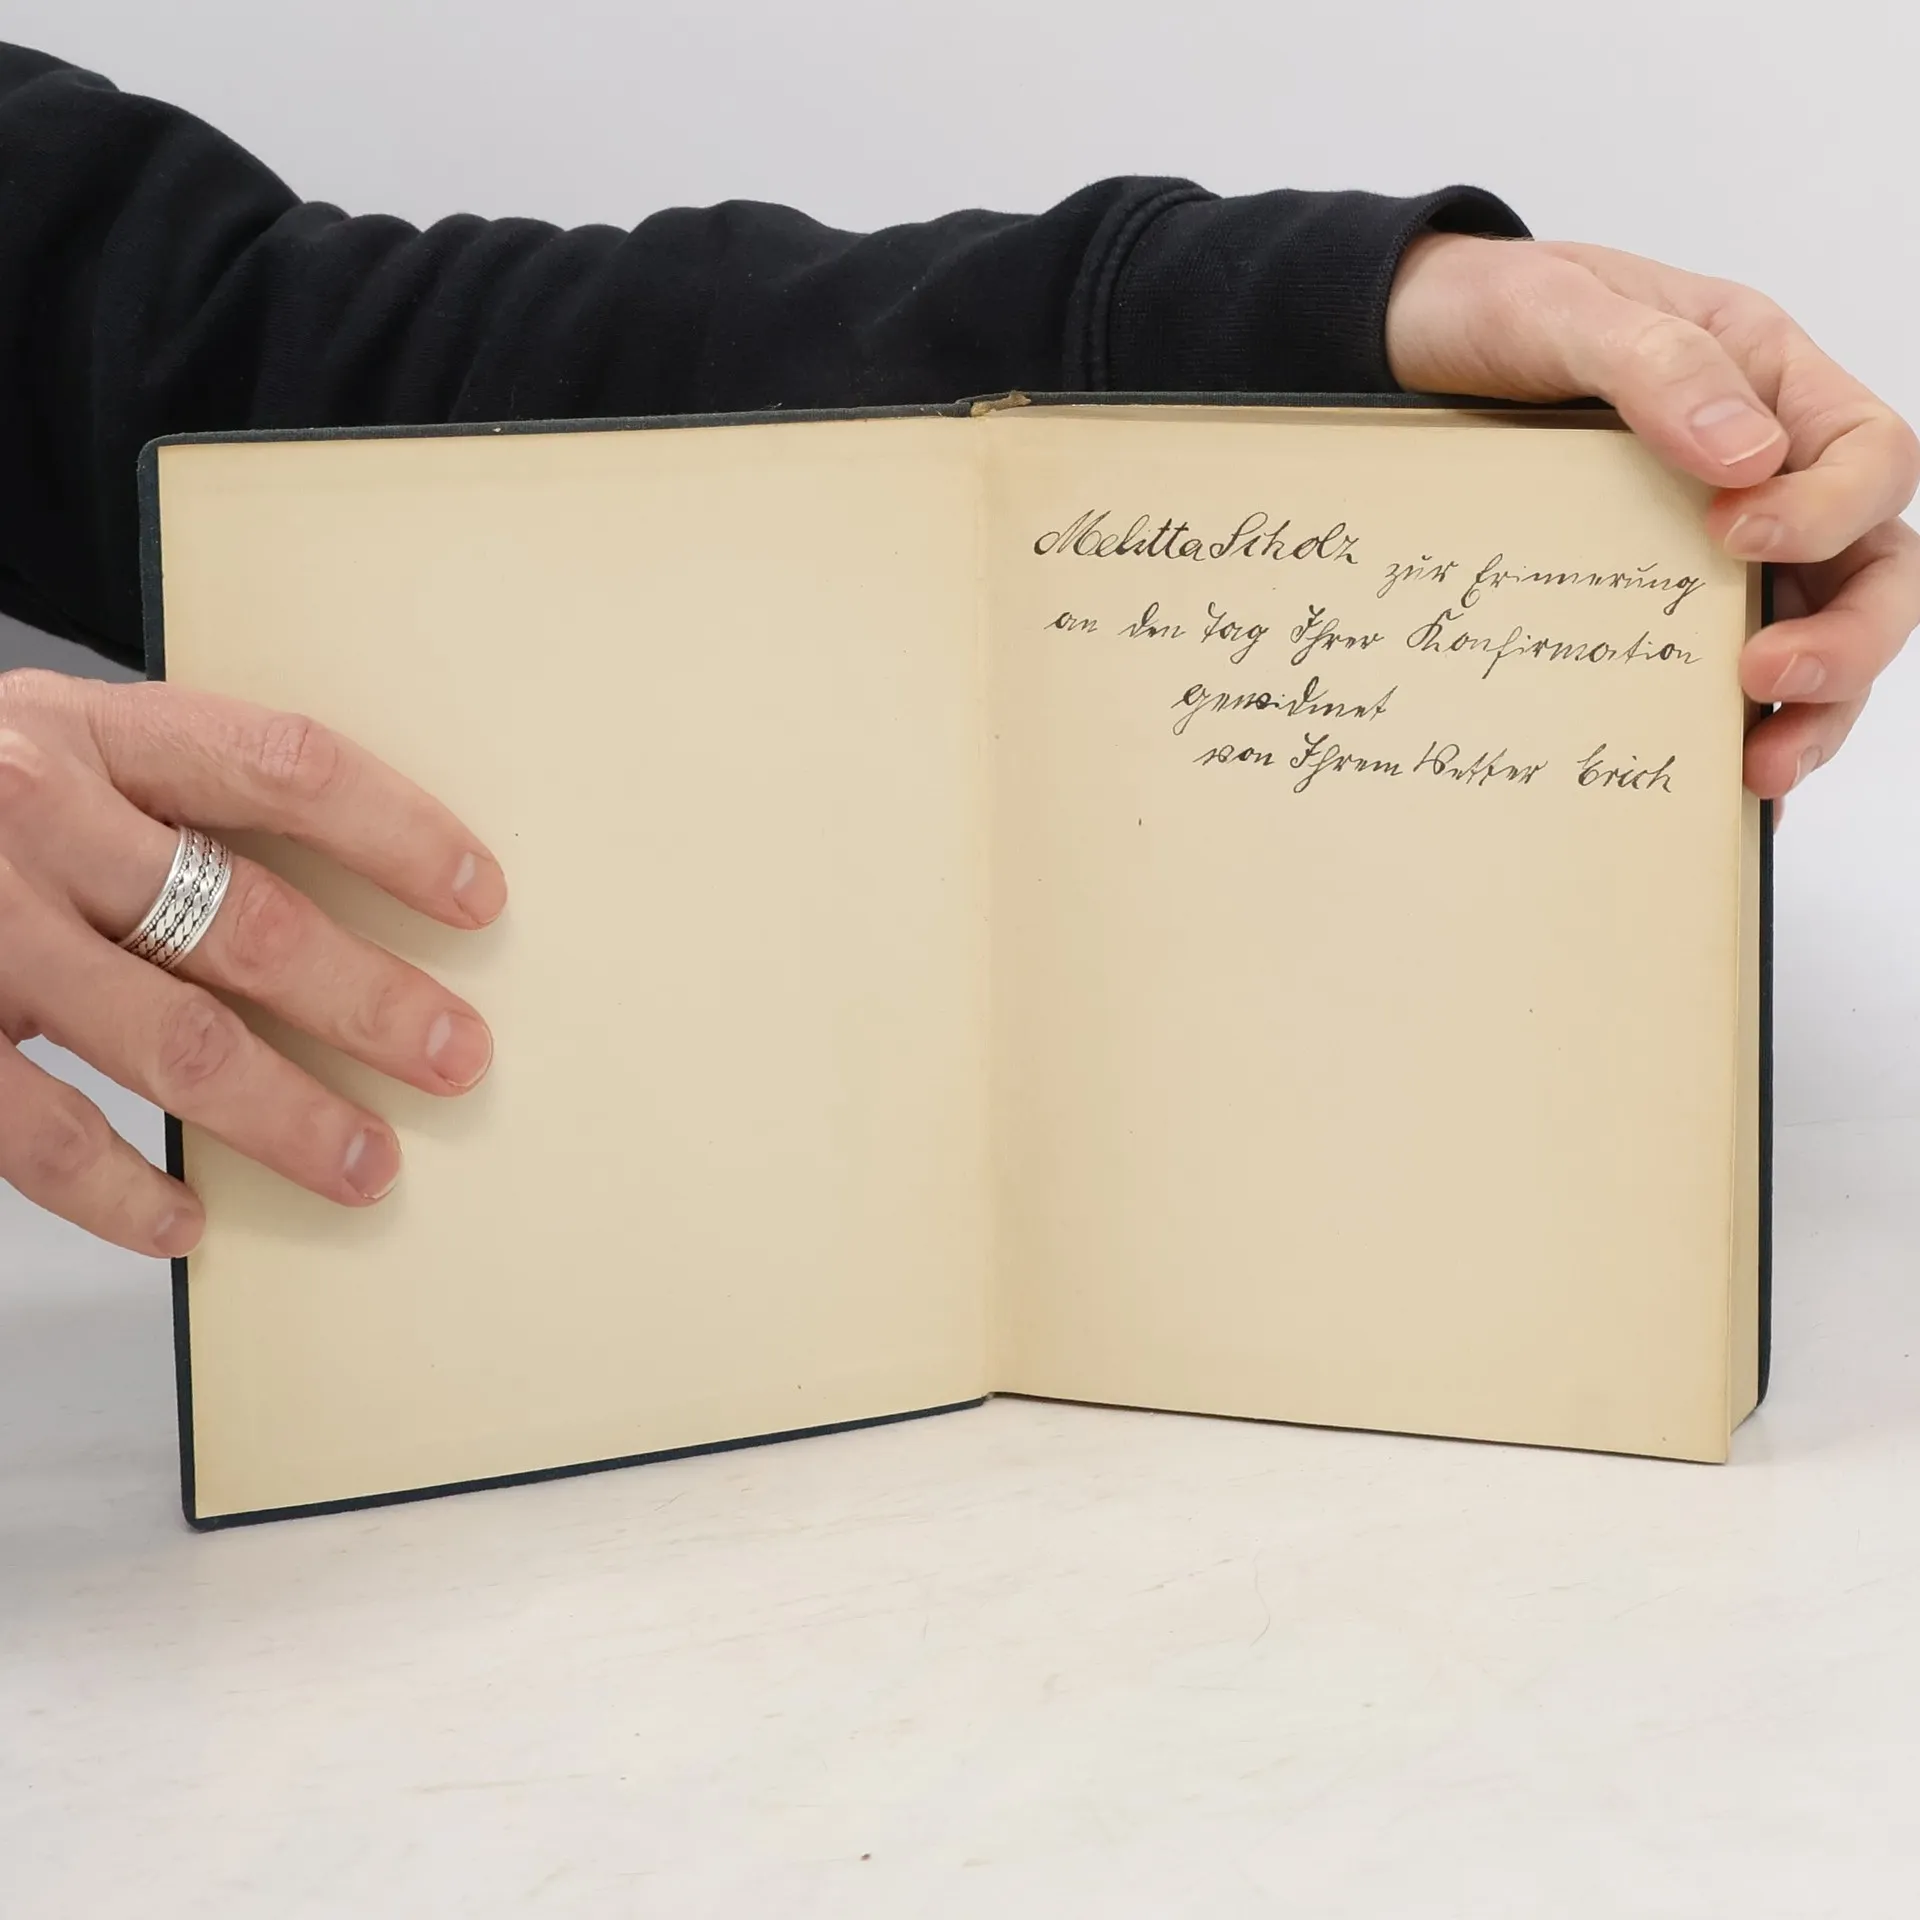 Melitta Scholz zur Erinnerung
an den Tag Ihrer Konfirmation
gewidmet
von Ihrem Vetter Erich